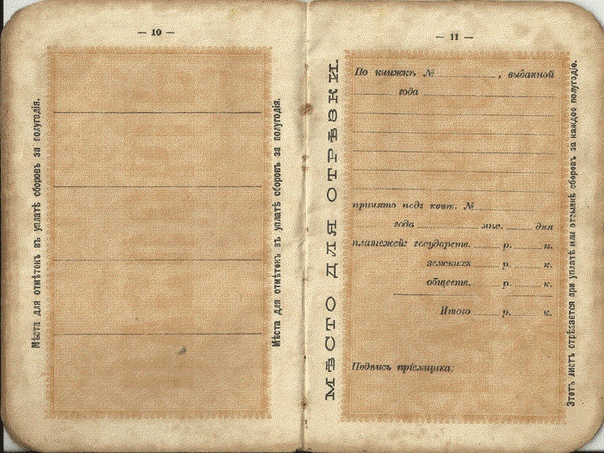 — 10 —
Мѣста для отмѣтокъ въ уплатѣ сборовъ за полугодія.
Мѣста для отмѣтокъ въ уплатѣ сборовъ за полугодія.
— 11 —
МѢСТО ДЛЯ ОТРѢЗКИ.
По книжкѣ № , выданной
года
принято подъ квит. №
года мѣс. дня
платежей: государств. р. к.
земскихъ р. к.
обществ. р. к.
Итого р. к.
Подпись пріемщика:
Этотъ листъ отрѣзается при уплатѣ или отсылкѣ сборовъ за каждое полугодіе.